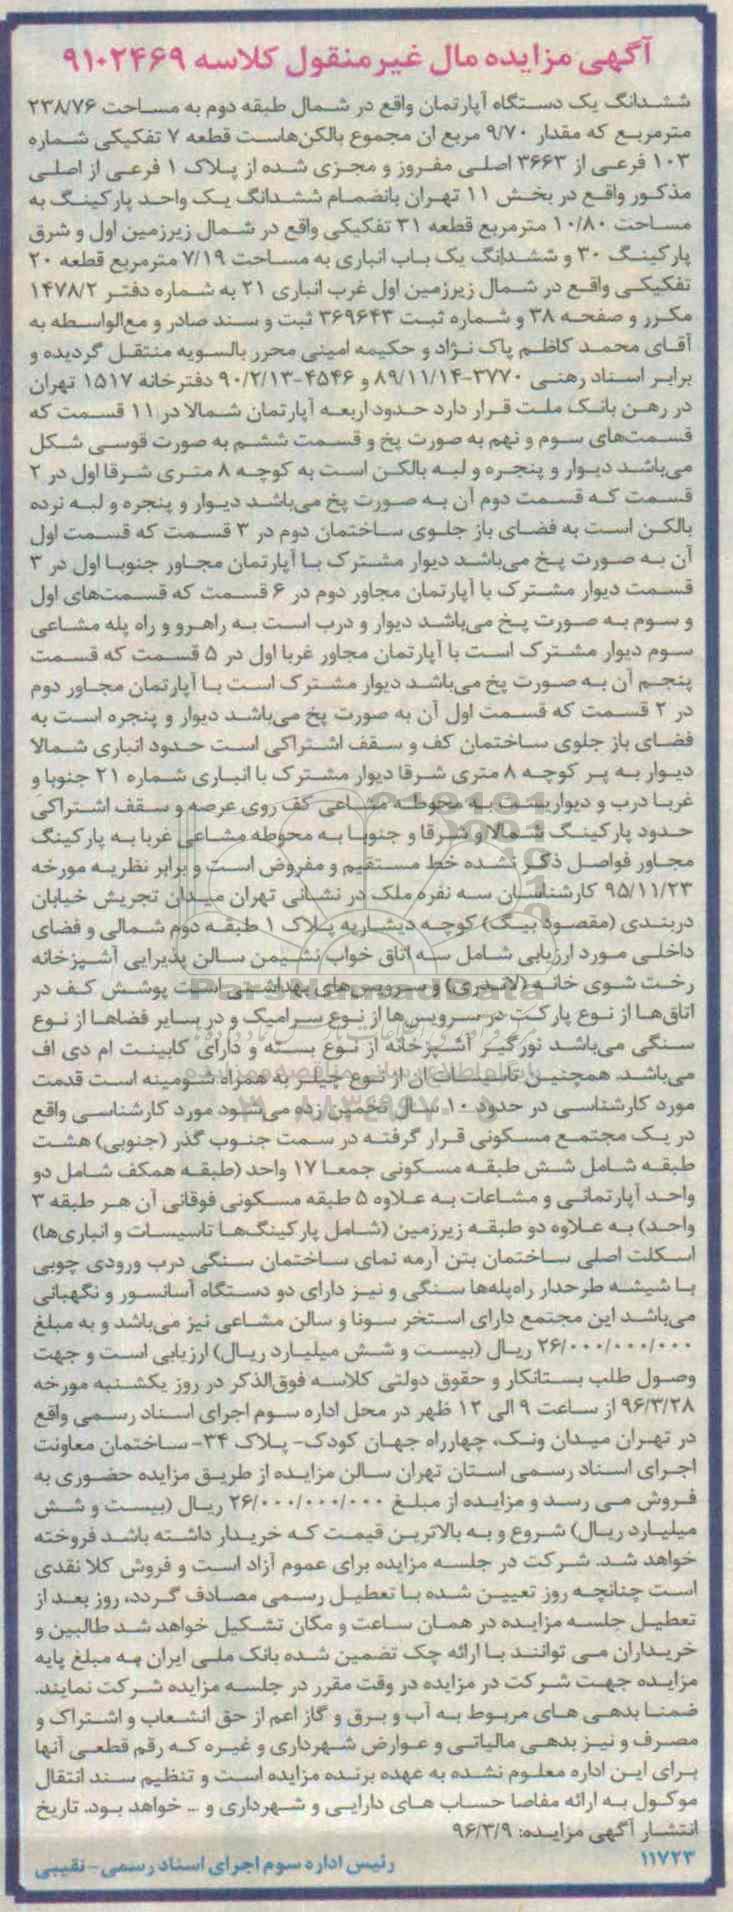 آگهی مزایده مال غیر منقول کلاسه ۹۱۰۲۴۶۹
ششدانگ یک دستگاه آپارتمان واقع در شمال طبقه دوم به مساحت ۲۳۸/۷۶
مترمربع که مقدار ۹/۷۰ مربع ان مجموع بالکن‌هاست قطعه ۷ تفکیکی شماره
۱۰۳ فرعی از ۳۶۶۳ اصلی مفروز و مجزی شده از پلاک ۱ فرعی از اصلی
مذکور واقع در بخش ۱۱ تهران بانضمام ششدانگ یک واحد پارکینگ به
مساحت ۱۰/۸۰ مترمربع قطعه ۳۱ تفکیکی واقع در شمال زیرزمین اول و شرق
پارکینگ ۳۰ و ششدانگ یک باب انباری به مساحت ۷/۱۹ مترمربع قطعه ۲۰
تفکیکی واقع در شمال زیرزمین اول غرب انباری ۲۱ به شماره دفتر ۱۴۷۸/۲
مکرر و صفحه ۳۸ و شماره ثبت ۳۶۹۶۴۳ ثبت و سند صادر و مع‌الواسطه به
آقای محمد کاظم پاک نژاد و حکیمه امینی محرر بالسویه منتقل گردیده و
برابر اسناد رهنی ۳۷۷۰-۸۹/۱۱/۱۴ و ۴۵۴۶-۹۰/۲/۱۳ دفترخانه ۱۵۱۷ تهران
در رهن بانک ملت قرار دارد حدود اربعه آپارتمان شمالا در ۱۱ قسمت که
قسمت‌های سوم و نهم به صورت پخ و قسمت ششم به صورت قوسی شکل
می‌باشد دیوار و پنجره و لبه بالکن است به کوچه ۸ متری شرقا اول در ۲
قسمت که قسمت دوم آن به صورت پخ می‌باشد دیوار و پنجره و لبه نرده
بالکن است به فضای باز جلوی ساختمان دوم در ۳ قسمت که قسمت اول
آن به صورت پخ می‌باشد دیوار مشترک با آپارتمان مجاور جنوبا اول در ۳
قسمت دیوار مشترک با آپارتمان مجاور دوم در ۶ قسمت که قسمت‌های اول
و سوم به صورت پخ می‌باشد دیوار و درب است به راهرو و راه پله مشاعی
سوم دیوار مشترک است با آپارتمان مجاور غربا اول در ۵ قسمت که قسمت
پنجم آن به صورت پخ می‌باشد دیوار مشترک است با آپارتمان مجاور دوم
در ۲ قسمت که قسمت اول آن به صورت پخ می‌باشد دیوار و پنجره است به
فضای باز جلوی ساختمان کف و سقف اشتراکی است حدود انباری شمالا
دیوار به پر کوچه ۸ متری شرقا دیوار مشترک با انباری شماره ۲۱ جنوبا و
غربا درب و دیواریست به محوطه مشاعی کف روی عرصه و سقف اشتراکی
حدود پارکینگ شمالا و شرقا و جنوبا به محوطه مشاعی غربا به پارکینگ
مجاور فواصل ذکر نشده خط مستقیم و مفروض است و برابر نظریه مورخه
۹۵/۱۱/۲۳ کارشناسان سه نفره ملک در نشانی تهران میدان تجریش خیابان
دربندی (مقصود بیگ) کوچه دیشاریه پلاک ۱ طبقه دوم شمالی و فضای
داخلی مورد ارزیابی شامل سه اتاق خواب نشیمن سالن پذیرایی آشپزخانه
رخت شوی خانه (لاندری) و سرویس‌های بهداشتی است پوشش کف در
اتاق‌ها از نوع پارکت در سرویس‌ها از نوع سرامیک و در سایر فضاها از نوع
سنگی می‌باشد نورگیر آشپزخانه از نوع بسته و دارای کابینت ام دی اف
می‌باشد. همچنین تاسیسات آن از نوع چیلر به همراه شومینه است قدمت
مورد کارشناسی در حدود ۱۰ سال تخمین زده می‌شود مورد کارشناسی واقع
در یک مجتمع مسکونی قرار گرفته در سمت جنوب گذر (جنوبی) هشت
طبقه شامل شش طبقه مسکونی جمعا ۱۷ واحد (طبقه همکف شامل دو
واحد آپارتمانی و مشاعات به علاوه ۵ طبقه مسکونی فوقانی آن هر طبقه ۳
واحد) به علاوه دو طبقه زیرزمین (شامل پارکینگ‌ها تاسیسات و انباری‌ها)
اسکلت اصلی ساختمان بتن آرمه نمای ساختمان سنگی درب ورودی چوبی
با شیشه طرحدار راه‌پله‌ها سنگی و نیز دارای دو دستگاه آسانسور و نگهبانی
می‌باشد این مجتمع دارای استخر سونا و سالن مشاعی نیز می‌باشد و به مبلغ
۲۶/۰۰۰/۰۰۰/۰۰۰ ریال (بیست و شش میلیارد ریال) ارزیابی است و جهت
وصول طلب بستانکار و حقوق دولتی کلاسه فوق‌الذکر در روز یکشنبه مورخه
۹۶/۳/۲۸ از ساعت ۹ الی ۱۲ ظهر در محل اداره سوم اجرای اسناد رسمی واقع
در تهران میدان ونک، چهارراه جهان کودک- پلاک ۳۴- ساختمان معاونت
اجرای اسناد رسمی استان تهران سالن مزایده از طریق مزایده حضوری به
فروش می رسد و مزایده از مبلغ ۲۶/۰۰۰/۰۰۰/۰۰۰ ریال (بیست و شش
میلیارد ریال) شروع و به بالاترین قیمت که خریدار داشته باشد فروخته
خواهد شد. شرکت در جلسه مزایده برای عموم آزاد است و فروش کلا نقدی
است چنانچه روز تعیین شده با تعطیل رسمی مصادف گردد، روز بعد از
تعطیل جلسه مزایده در همان ساعت و مکان تشکیل خواهد شد طالبین و
خریداران می توانند با ارائه چک تضمین شده بانک ملی ایران به مبلغ پایه
مزایده جهت شرکت در مزایده در وقت مقرر در جلسه مزایده شرکت نمایند.
ضمنا بدهی های مربوط به آب و برق و گاز اعم از حق انشعاب و اشتراک و
مصرف و نیز بدهی مالیاتی و عوارض شهرداری و غیره که رقم قطعی آنها
برای این اداره معلوم نشده به عهده برنده مزایده است و تنظیم سند انتقال
موکول به ارائه مفاصا حساب های دارایی و شهرداری و ... خواهد بود. تاریخ
انتشار آگهی مزایده: ۹۶/۳/۹
۱۱۷۲۳ رئیس اداره سوم اجرای اسناد رسمی- نقیبی